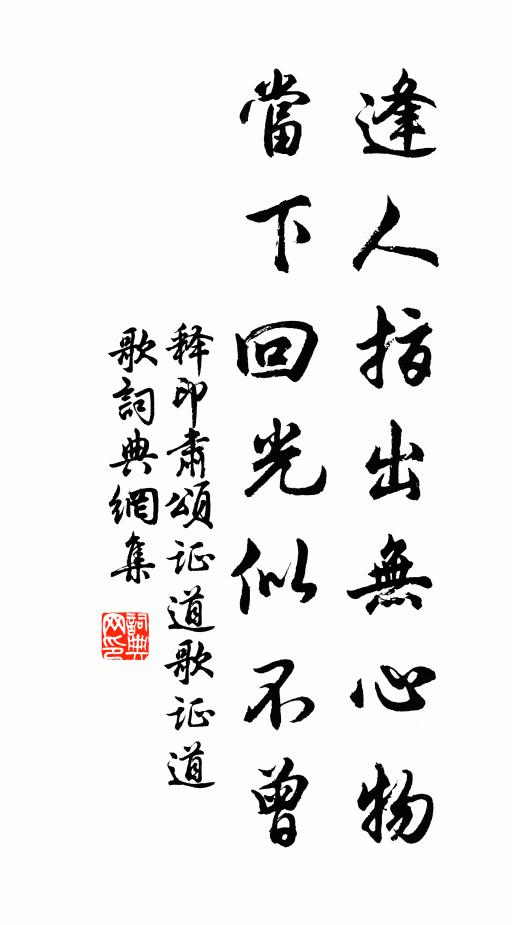 逢人指出無心物
當下回光似不曾
释印肃頌证道歌证道
歌詞典網集
詞典網印